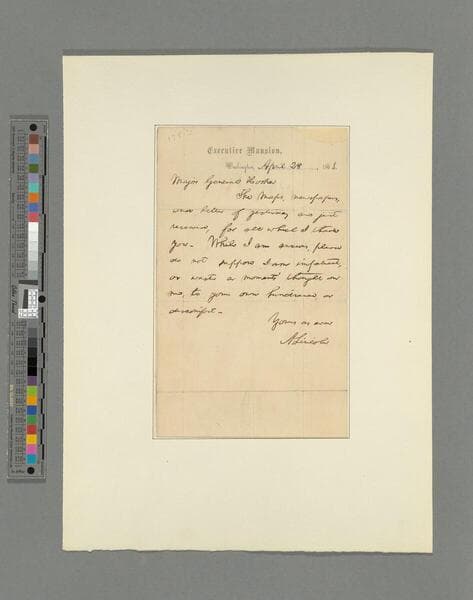 Executive Mansion,
Washington, April 28, 1863.
Major General Hooker
The Maps, newspapers,
and letter of yesterday, are just
received, for all which I thank
you. While I am anxious, please
do not suppose I am impatient,
or waste a moment's thought on
me, to your own hindrance, or
discomfort.
Yours as ever
A. Lincoln